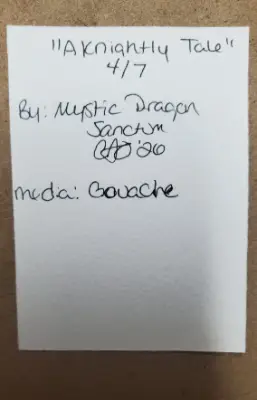 "A Knightly Tale"
4/7
By: Mystic Dragon
Sanctum
'26
Media: Gouache